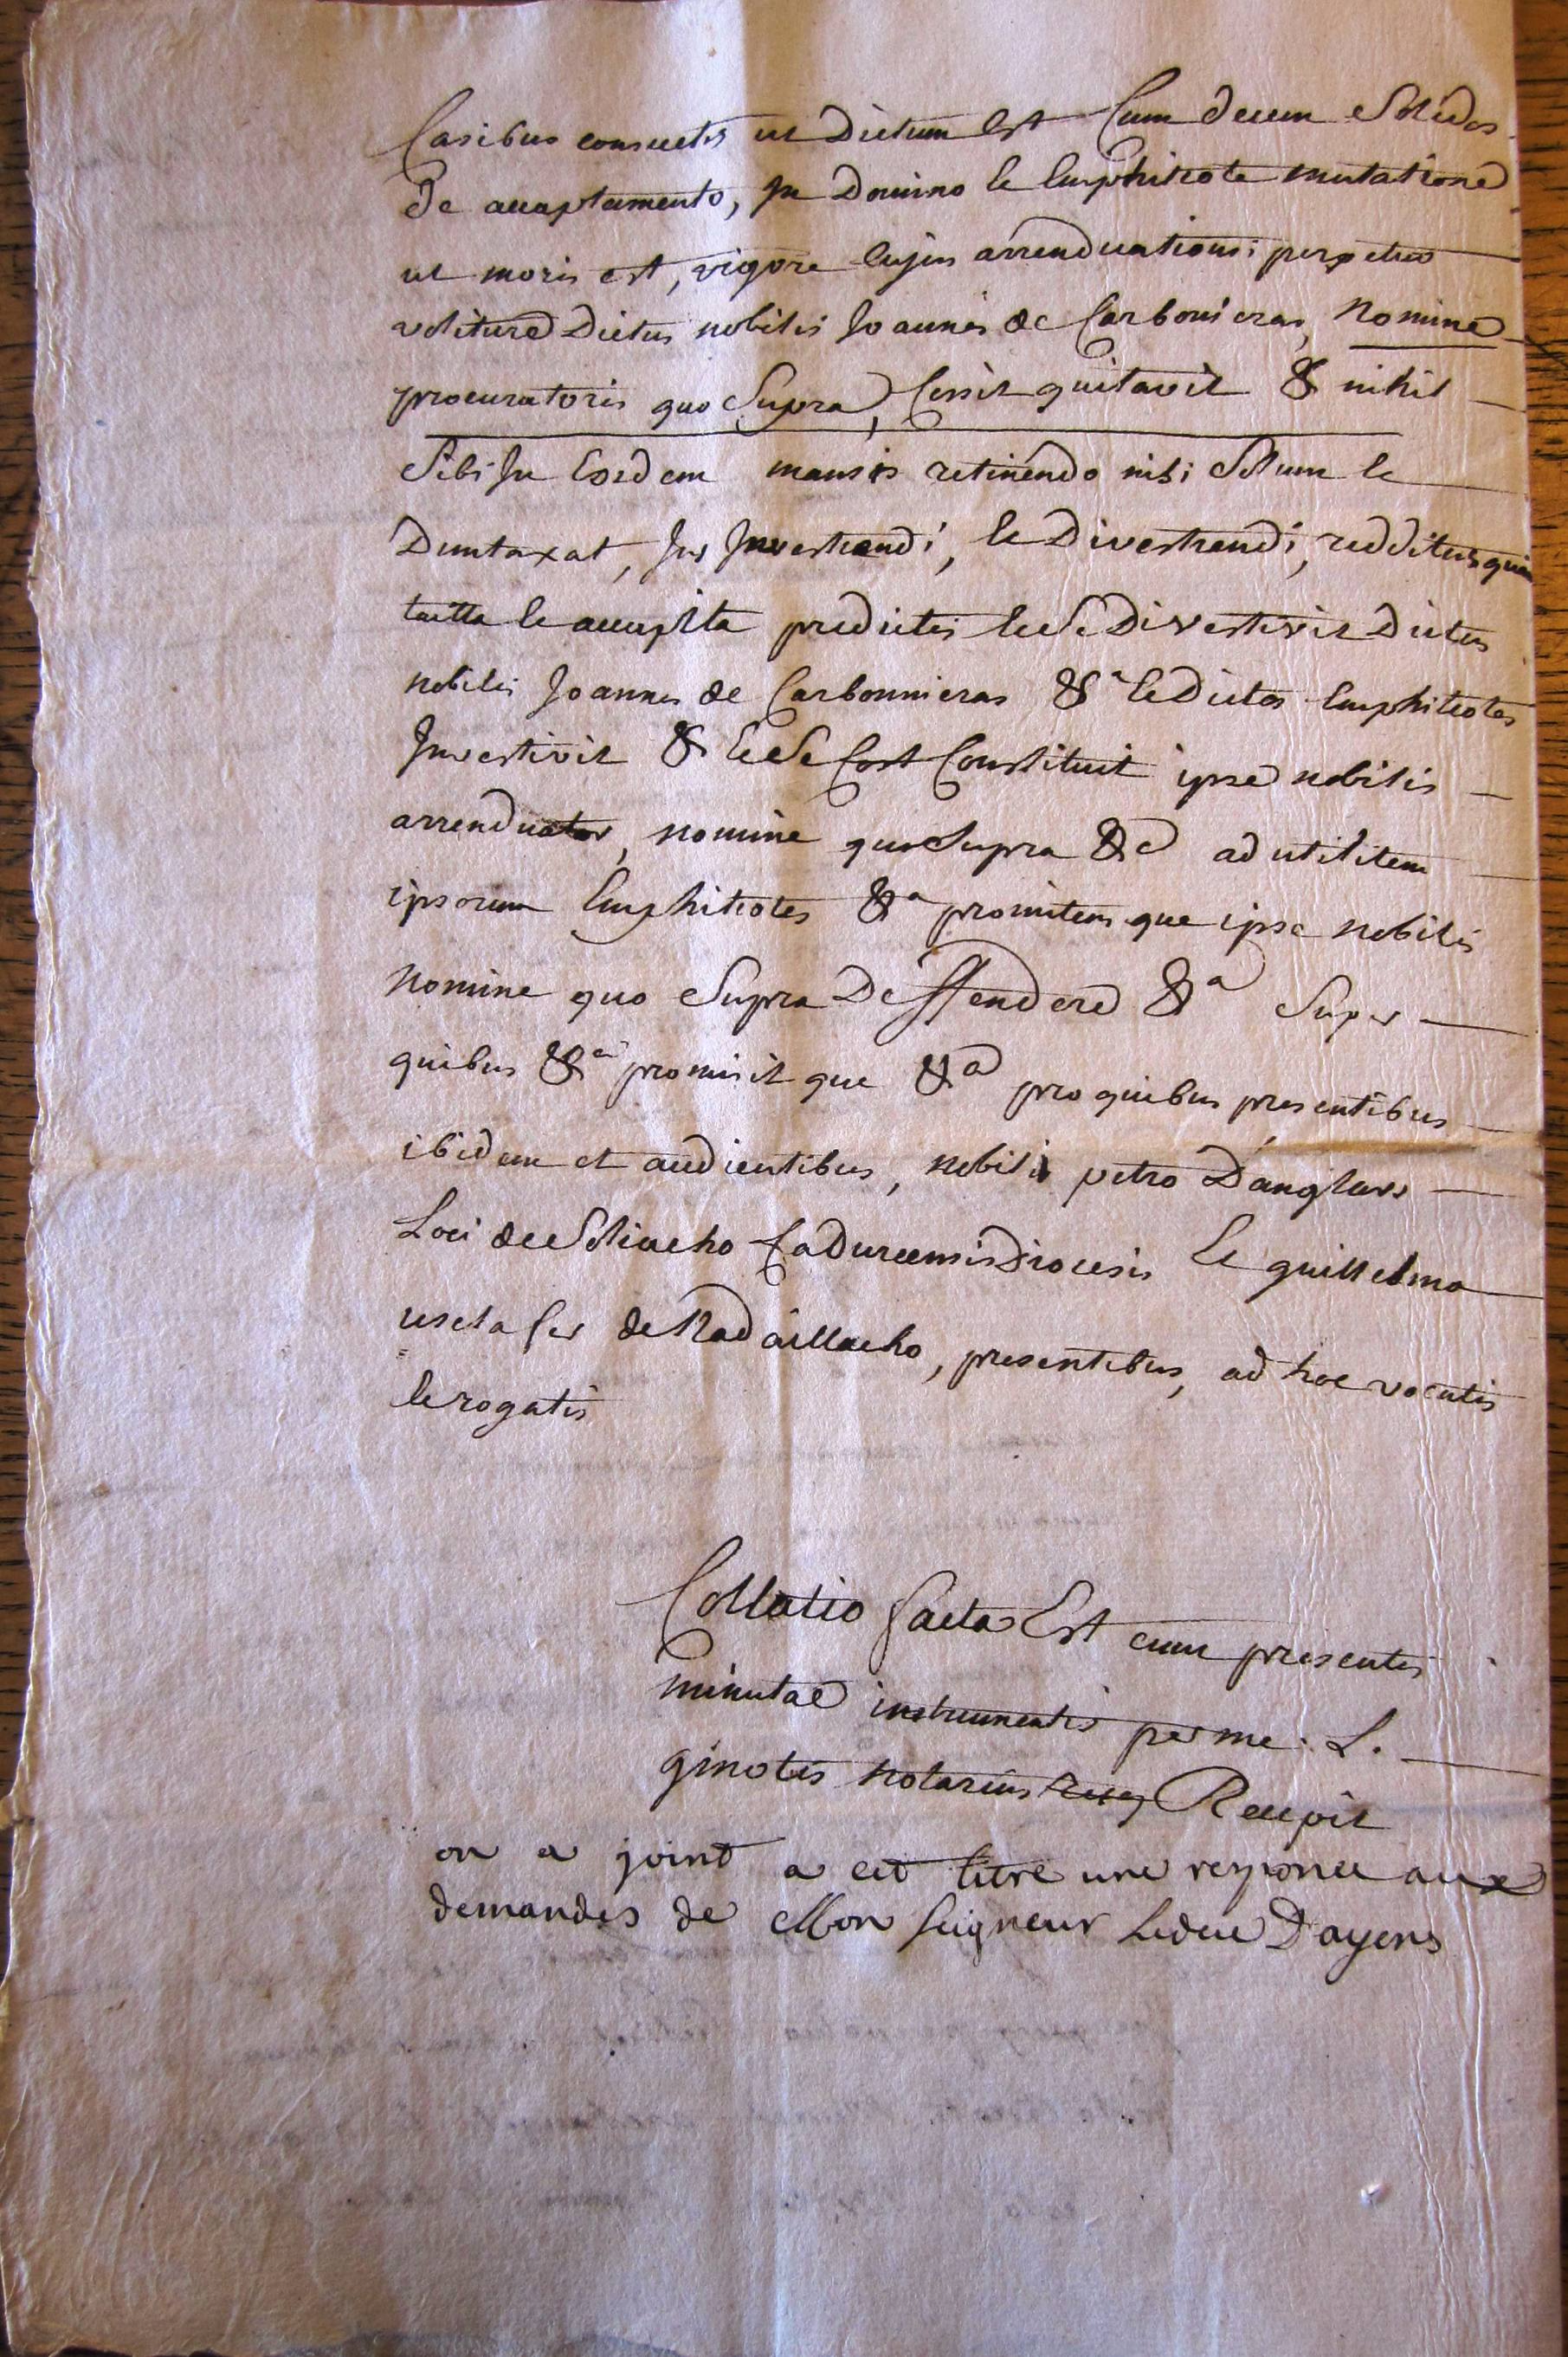 Casibus consuetis ut Dictum est Cum decem Solidos
de accaptamento, In Domino et Emphiteote mutatione
ut moris est, vigore cujus arrenduationis perpetuo
valiture Dictus nobilis Joannes de Carbonieras, nomine
procuratoris quo Supra, Cessit quitavit & nihil
Sibi In Eosdem mansis retinendo nisi Solum et
Dumtaxat, Jus Investiendi, et Divestiendi, redditus quin
tutta et accapita predictis et se Divestivit Dictus
nobilis Joannes de Carbonnieras &a et Dictos Emphiteotas
Investivit & et se Cost Constituit ipse nobilis
arrenduator, nomine quo supra &a ad utilitem
ipsorum Emphiteotes &a promitens que ipse nobilis
nomine quo Supra Deffendere &a Super
quibus &a promisit que &a pro quibus presentibus
ibidem et audientibus, nobili petro D'anglars
Loci de Soliacho Caducensis Diocesis et guillelmo
de Nadaillacho, presentibus, ad hoc vocatis
et rogatis
Collatio facta Est cum presentis
minutae instrumentis per me. L.
ginotis notarius Recepit
on a joint a cet titre une responce aux
demandes de Mon seigneur Leduc D'ayens